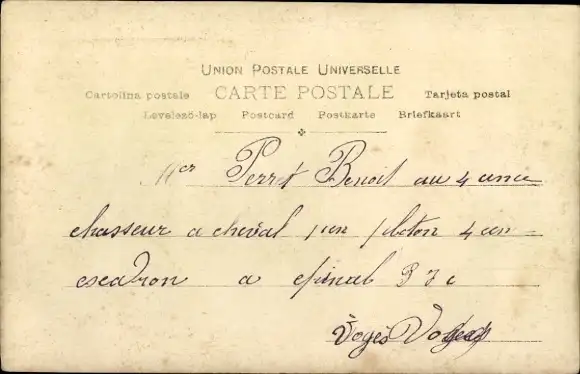 UNION POSTALE UNIVERSELLE
Cartolina postale CARTE POSTALE Tarjeta postal
Levelező-lap Postcard Postkarte Briefkaart
Mer Perret Benoit au 4 eme
chasseur a cheval 1 er ploton 4 em
escadron a epinal
Voges Voges